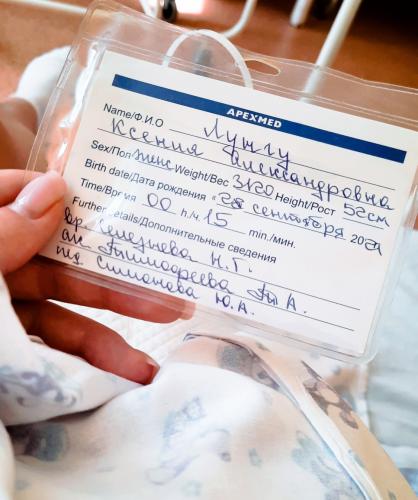 APEXMED
Name/Ф.И.О Лунгу
Ксения Александровна
Sex/Пол Weight/Вес Height/Рост 52см
Birth date/Дата рождения " сентября 20
Time/Время 00 h./ч. 15 min./мин.
Further details/Дополнительные сведения
вр. Селезнева Н.Г.
ак Тимофеева А.
пд Симанова Ю.А.